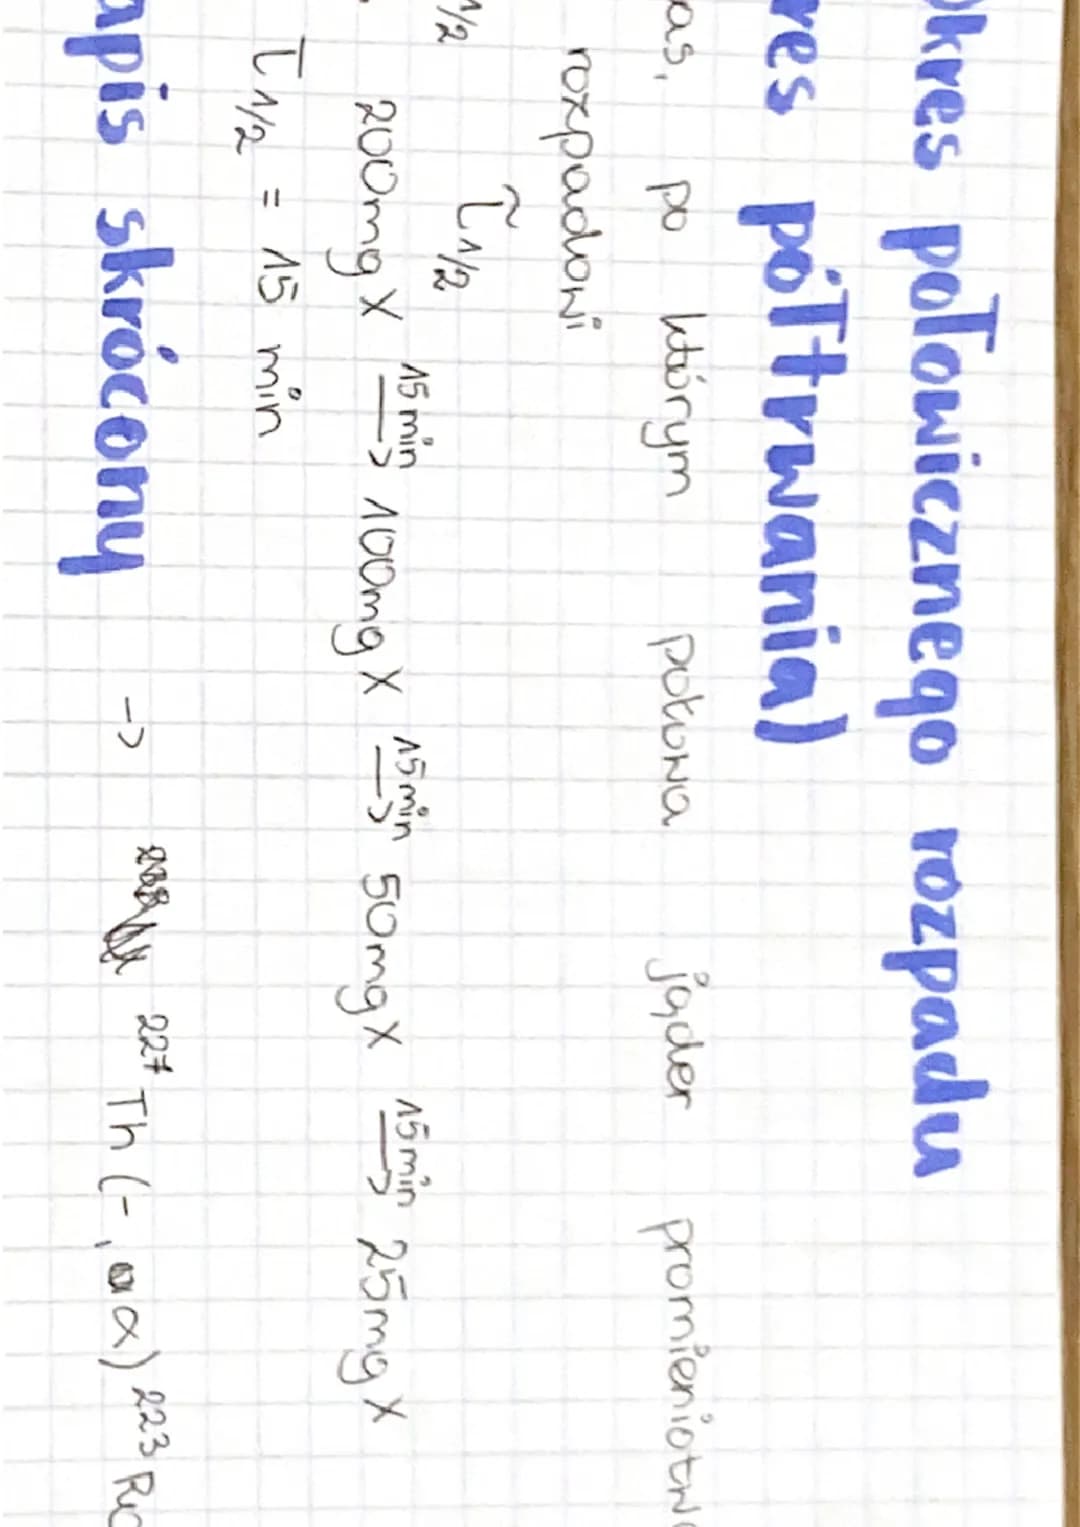 okres połowicznego rozpadu
res półtrwania)
as, po którym połowa jąder promieniotw
rozpadowi
1/2 τ1/2
200mg X 15 min → 100mg X 15 min → 50mg X 15 min → 25mg X
τ1/2 = 15 min
apis skrócony -> 227 Th (-, α) 223 Ra